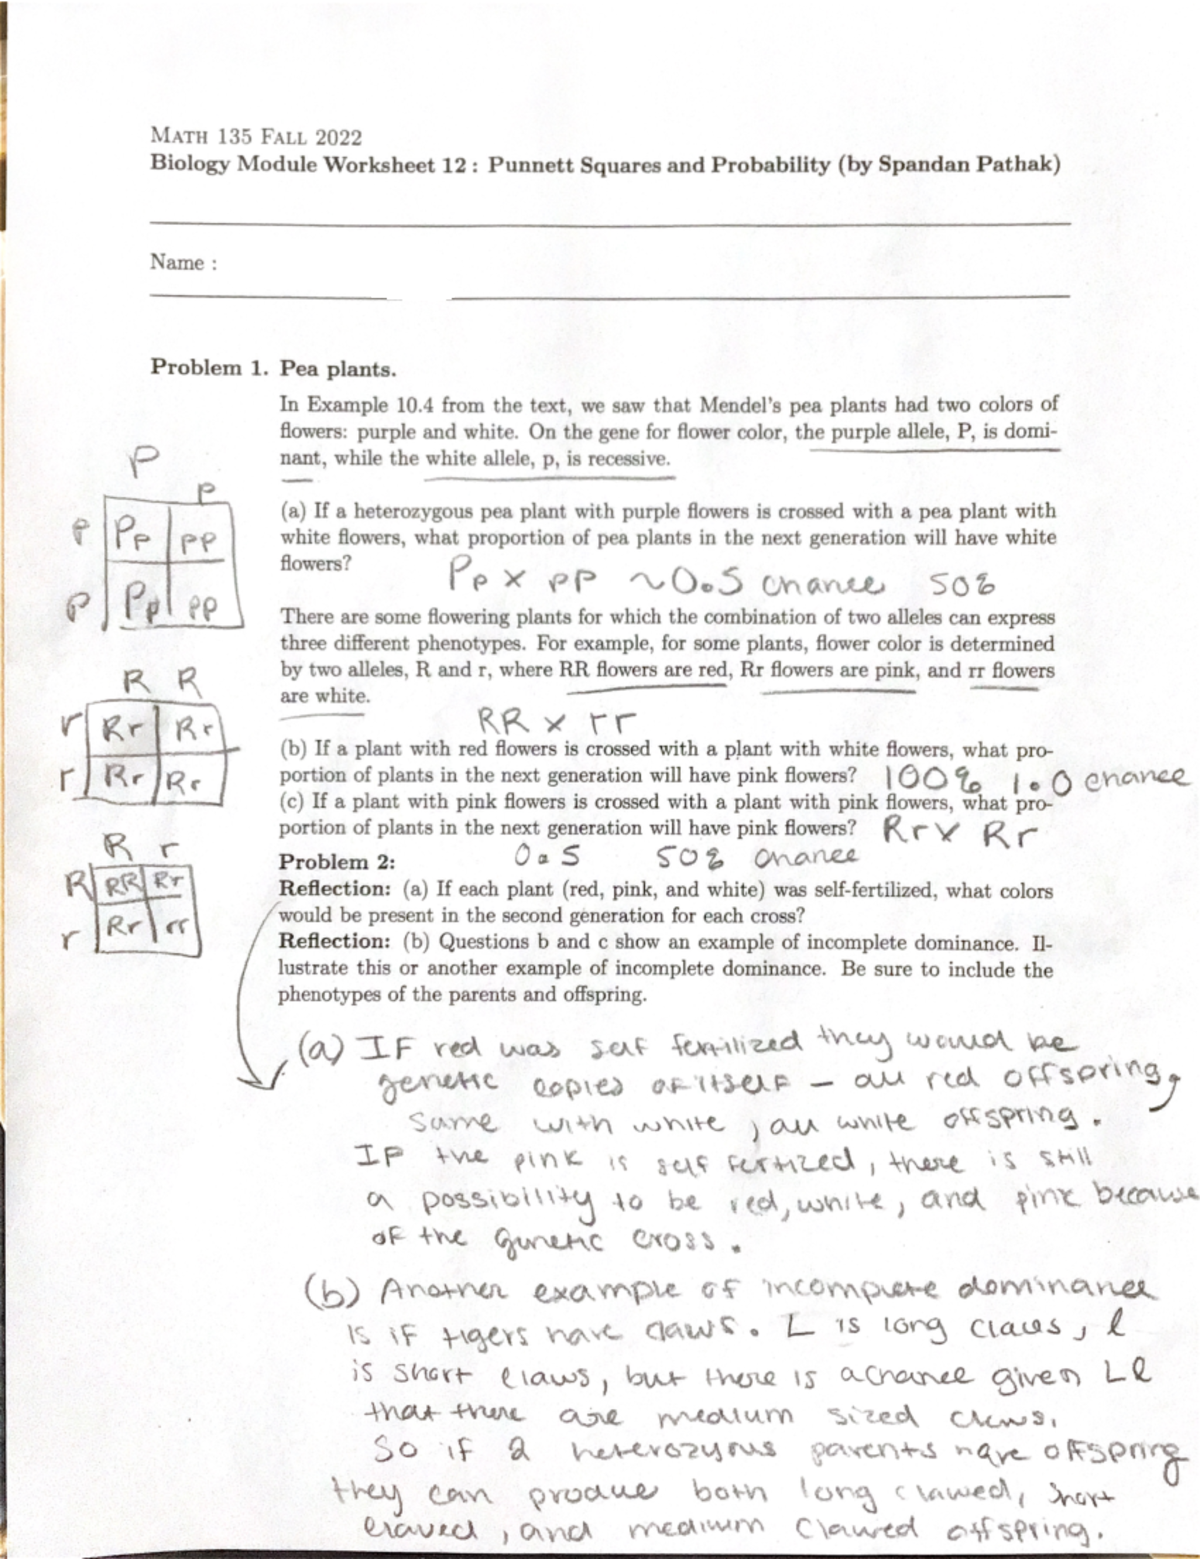 MATH 135 FALL 2022
Biology Module Worksheet 12 : Punnett Squares and Probability (by Spandan Pathak)
Name :
Problem 1. Pea plants.
In Example 10.4 from the text, we saw that Mendel's pea plants had two colors of
flowers: purple and white. On the gene for flower color, the purple allele, P, is domi-
nant, while the white allele, p, is recessive.
P p
p Pp pp
p Pp pp
(a) If a heterozygous pea plant with purple flowers is crossed with a pea plant with
white flowers, what proportion of pea plants in the next generation will have white
flowers? Pp x pp ~0.5 chance 50%
There are some flowering plants for which the combination of two alleles can express
three different phenotypes. For example, for some plants, flower color is determined
by two alleles, R and r, where RR flowers are red, Rr flowers are pink, and rr flowers
are white.
R R
r Rr Rr
r Rr Rr
RR x rr
(b) If a plant with red flowers is crossed with a plant with white flowers, what pro-
portion of plants in the next generation will have pink flowers? 100% 1.0 chance
(c) If a plant with pink flowers is crossed with a plant with pink flowers, what pro-
portion of plants in the next generation will have pink flowers? Rr x Rr
R r
R RR Rr
r Rr rr
Problem 2: 0.5 50% chance
Reflection: (a) If each plant (red, pink, and white) was self-fertilized, what colors
would be present in the second generation for each cross?
Reflection: (b) Questions b and c show an example of incomplete dominance. Il-
lustrate this or another example of incomplete dominance. Be sure to include the
phenotypes of the parents and offspring.
(a) IF red was self fertilized they would be
genetic copies of itself - all red offspring,
same with white, all white offspring.
IF the pink is self fertized, there is still
a possibility to be red, white, and pink because
of the genetic cross.
(b) Another example of incomplete dominance
is if tigers have claws. L is long claws, l
is short claws, but there is a chance given Ll
that there are medium sized claws.
So if 2 heterozygous parents have offspring
they can produce both long clawed, short
clawed, and medium clawed offspring.